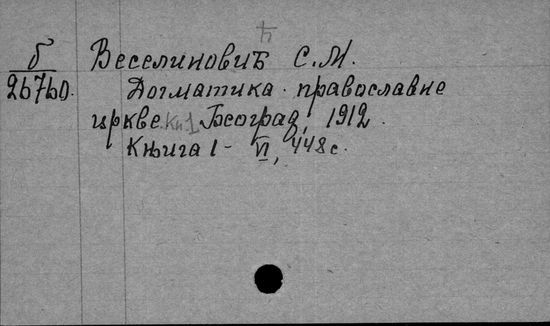 ћ
б Веселиновић С. М.
26760. Догматика православне
цркве Кн 1 Београд, 1912.
Књига I - VI, 448 с.